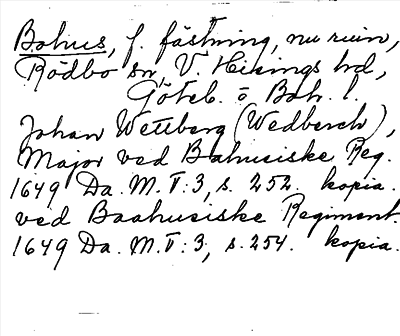 Bohus, f. fästning, nu ruin,
Rödbo sn, V. Hisings hd,
Göteb. o Boh. l.
Johan Wettberg (Wedberch),
Major ved Bahusiske Reg.
1649 Da. M. V: 3, s. 252. kopia.
ved Baahusiske Regiment.
1649 Da. M. V: 3, s. 254. kopia.